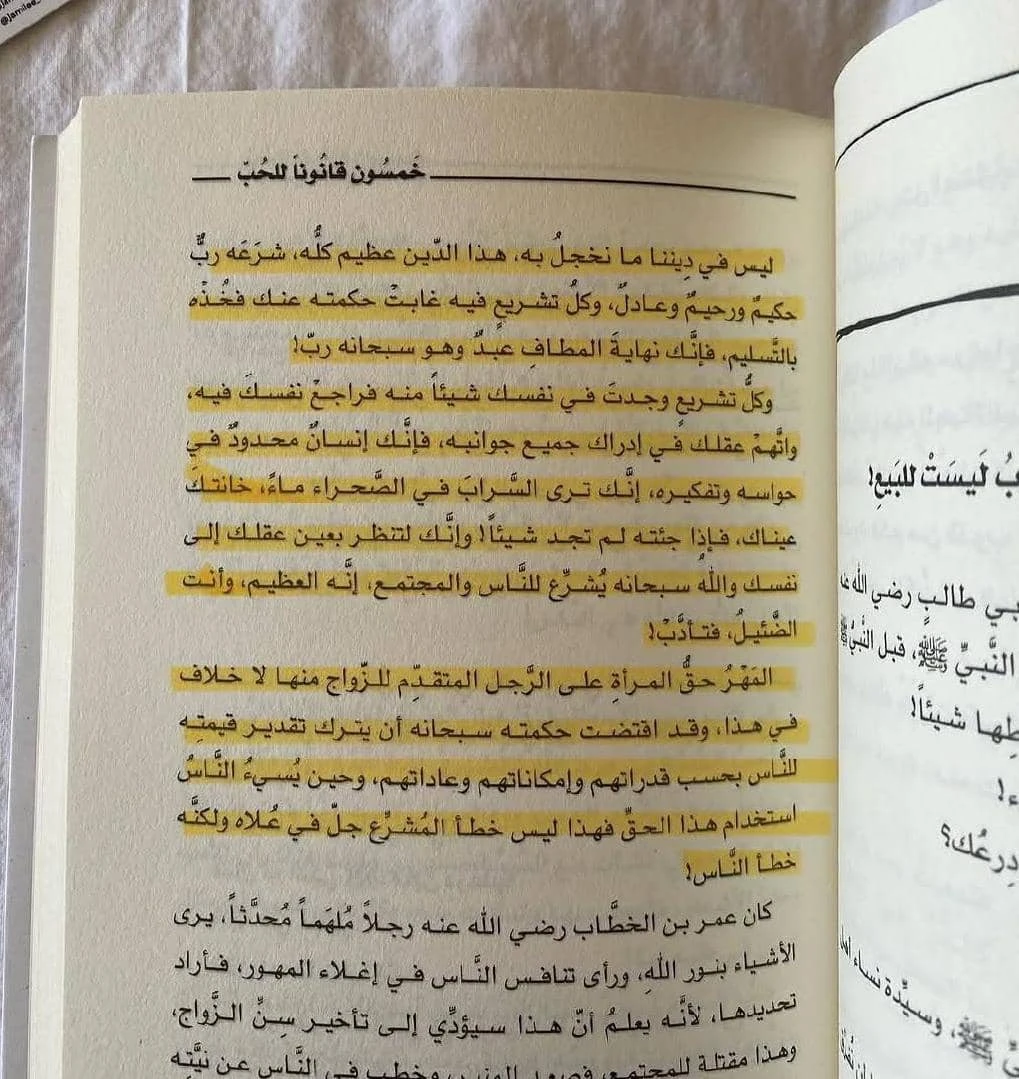 خَمسُون قانُوناً للحُبّ
ليس في دِيننا ما نخجلُ به، هذا الدّين عظيم كلُّه، شرَعَه ربٌّ
حكيمٌ ورحيمٌ وعادلٌ، وكلُّ تشريعٍ فيه غابتْ حكمته عنك فخُذْه
بالتَّسليم، فإنَّك نهايةَ المطافِ عبدٌ وهو سبحانه ربّ!
وكلُّ تشريعٍ وجدتَ في نفسك شيئاً منه فراجعْ نفسكَ فيه،
واتَّهِمْ عقلك في إدراك جميع جوانبه، فإنَّك إنسانٌ محدودٌ في
حواسه وتفكيره، إنَّك ترى السَّرابَ في الصَّحراء ماءً، خانتكَ
عيناك، فإذا جئته لم تجد شيئاً! وإنَّك لتنظر بعين عقلك إلى
نفسك واللهُ سبحانه يُشرِّع للنَّاس والمجتمع، إنَّه العظيم، وأنت
الضَّئيلُ، فتأدَّبْ!
المَهْرُ حقُّ المرأةِ على الرَّجل المتقدِّم للزَّواج منها لا خلاف
في هذا، وقد اقتضت حكمته سبحانه أن يترك تقدير قيمتِه
للنَّاس بحسب قدراتهم وإمكاناتهم وعاداتهم، وحين يُسيءُ النَّاسُ
استخدام هذا الحقِّ فهذا ليس خطأ المُشرِّع جلّ في عُلاه ولكنَّه
خطأ النَّاس!
كان عمر بن الخطَّاب رضي الله عنه رجلاً مُلهَماً مُحدَّثاً، يرى
الأشياء بنور اللهِ، ورأى تنافس النَّاس في إغلاء المهور، فأراد
تحديدها، لأنَّه يعلمُ أنّ هذا سيؤدِّي إلى تأخير سِنِّ الزَّواج،
وهذا مقتلة للمجتمع، فصعد المنبر، وخطب في النَّاس عن نيَّتِه
لَيسَتْ للبَيعِ!
طالبٍ رضي الله عنه
النَّبيِّ ﷺ، قبل النَّبيّ ﷺ
شيئاً!
دِرعُك؟
وسيِّدة نساء